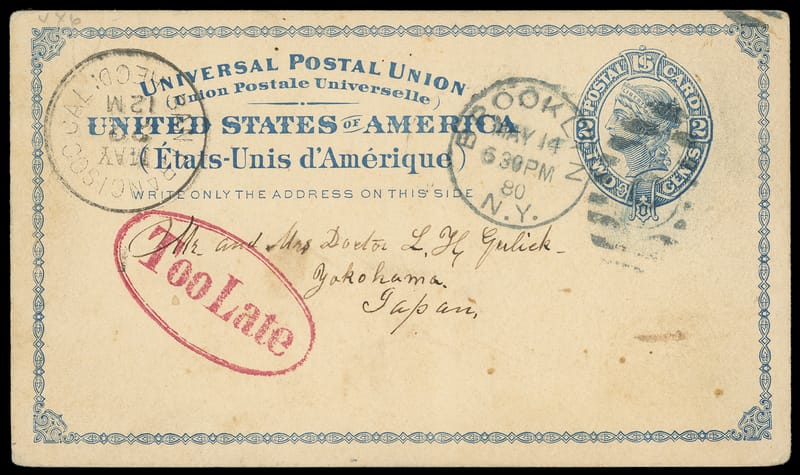 UNIVERSAL POSTAL UNION
(Union Postale Universelle)
UNITED STATES OF AMERICA
(États-Unis d'Amérique)
WRITE ONLY THE ADDRESS ON THIS SIDE
POSTAL CARD
U S
2 2
TWO CENTS
BROOKLYN
MAY 14
630PM
80
N.Y.
REC'D.
12 M
MAY
CAL.
Too Late
Mr. and Mrs Doctor L. H. Gulick
Yokohama.
Japan,